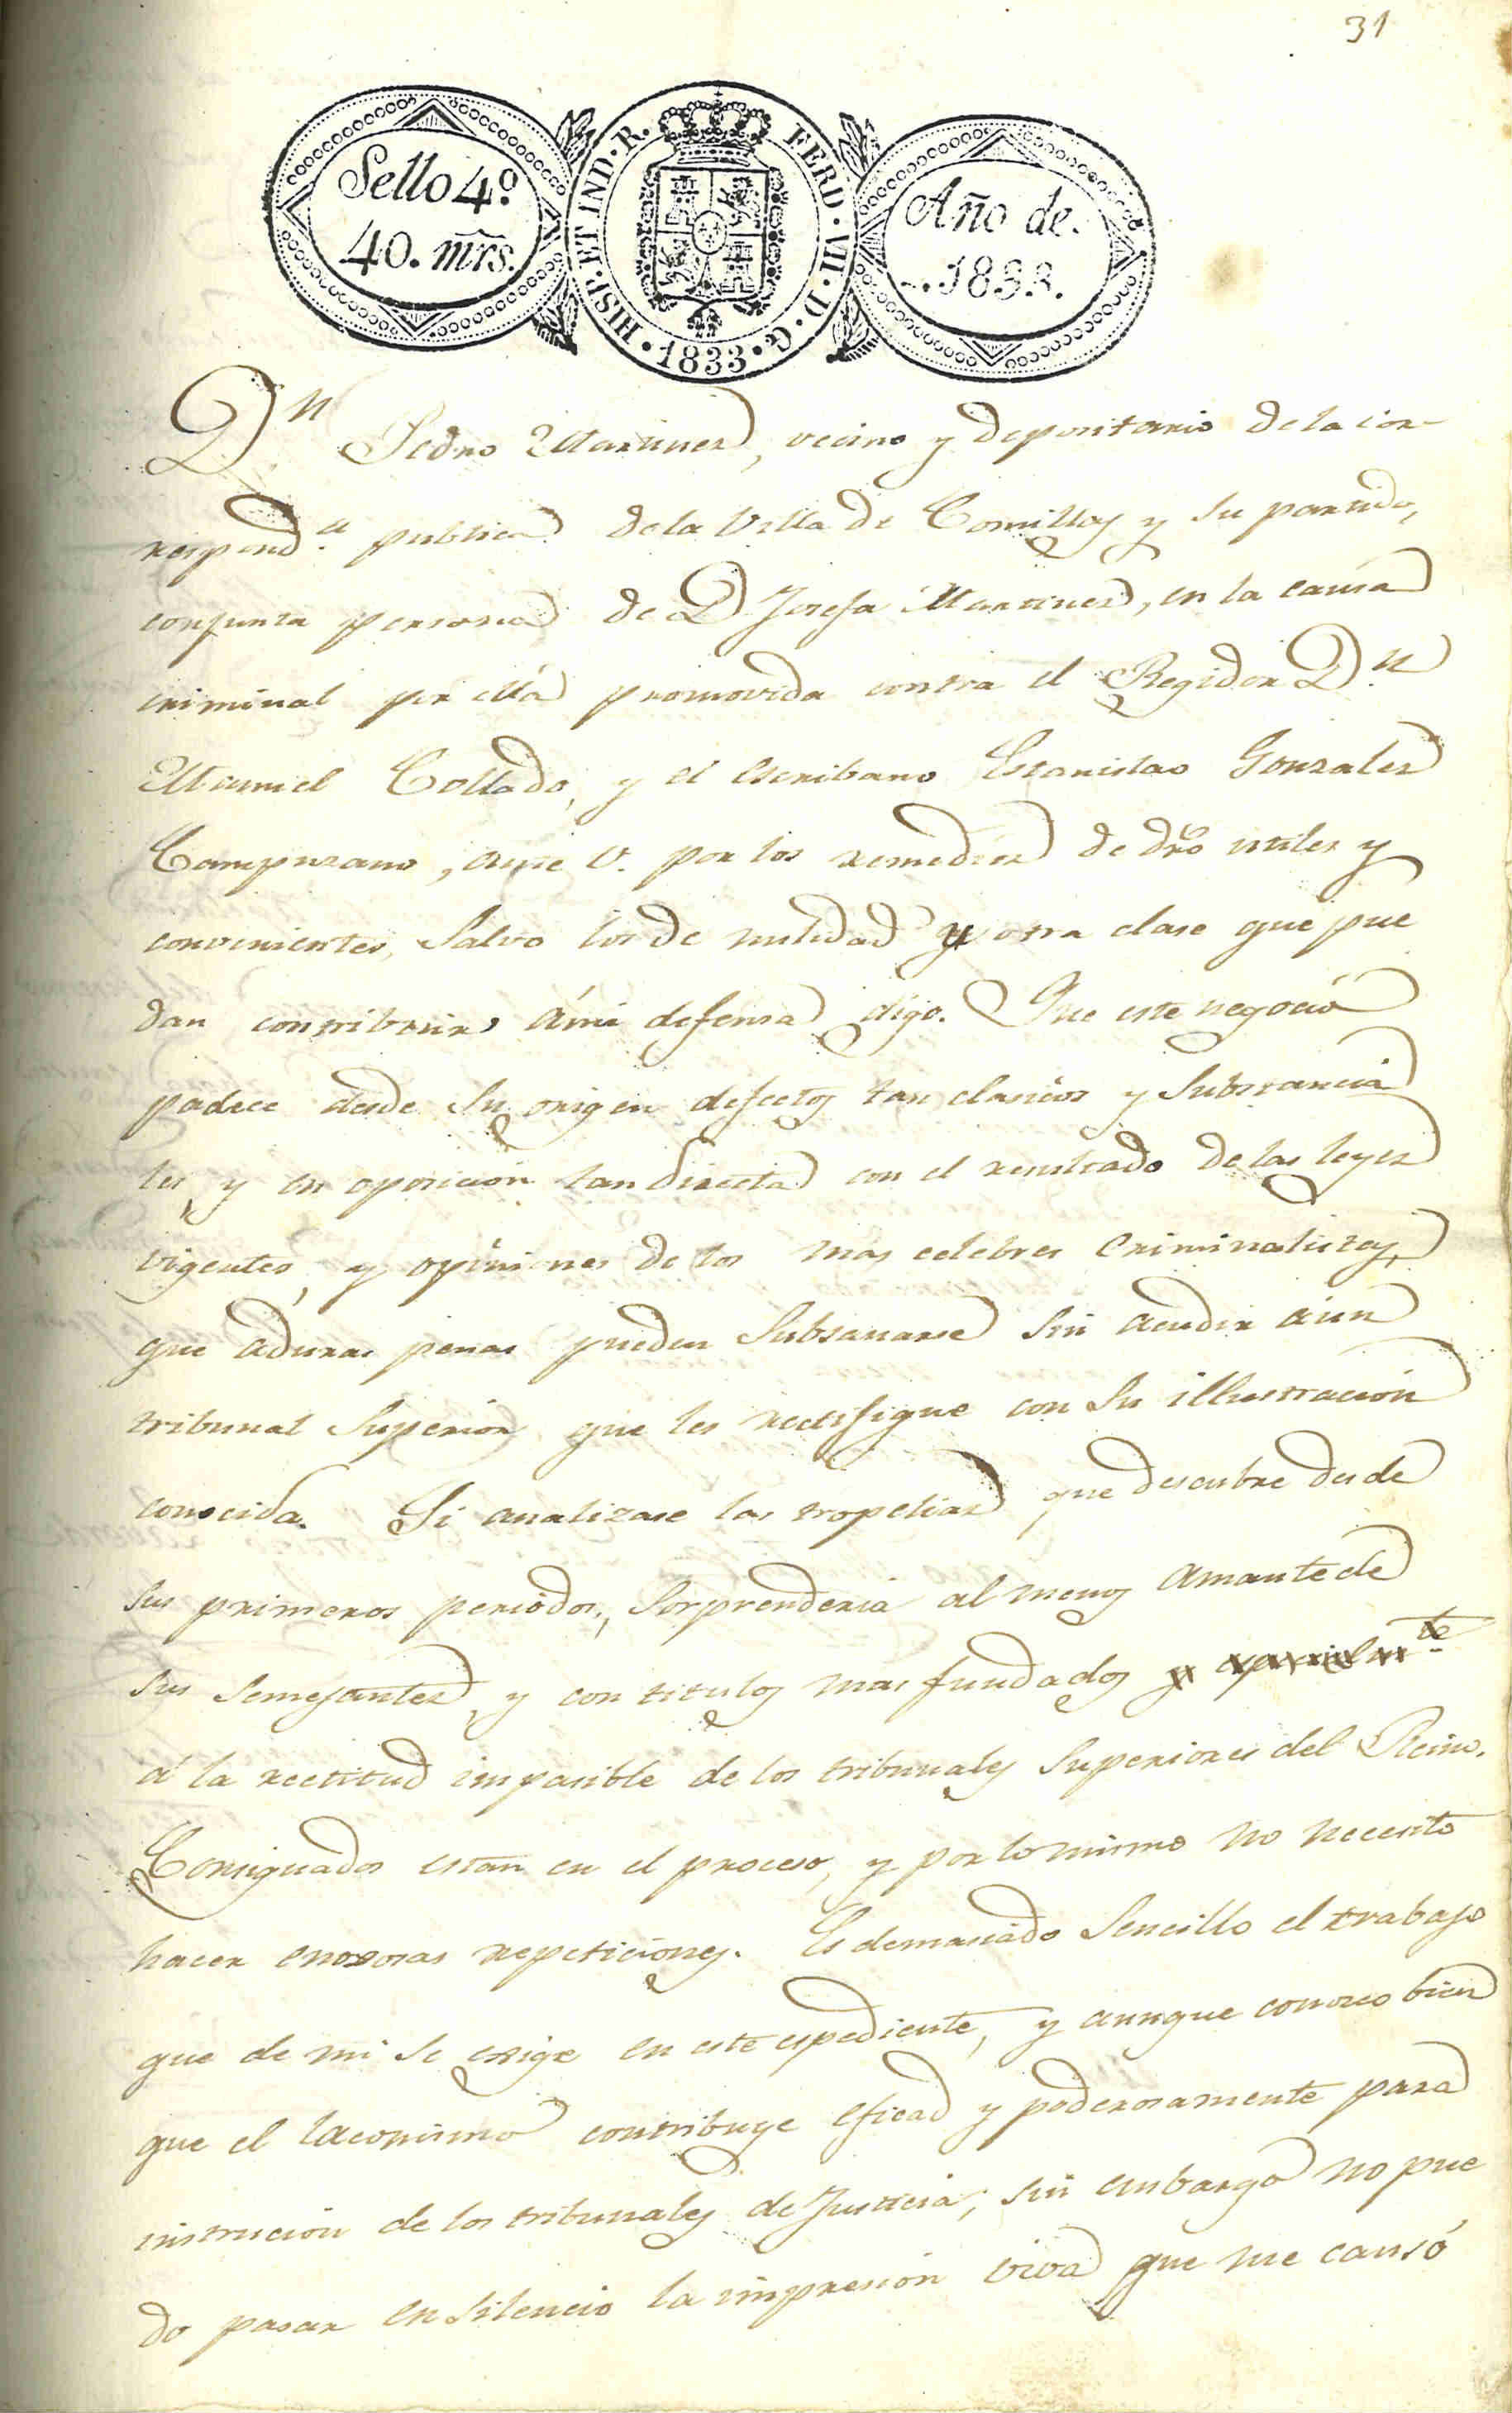 31
Sello 4º.
40. mrs.
HISP. ET IND. R. FERD. VII. D. G. 1833.
Año de.
1833.
Dn Pedro Martinez, vecino y depositario de la cor-
respond.a publica de la Villa de Comillas y su partido,
conjunta persona de Da Josefa Martinez, en la causa
criminal por ella promovida contra el Regidor Dn
Manuel Collado, y el escribano Estanislao Gonzalez
Campuzano, ante V. por los remedios de dro utiles y
convenientes, salvo los de nulidad y otra clase que pue
dan contribuir á mi defensa digo. Que este negocio
padece desde su origen defectos tan clasicos y substancia
les, y en oposicion tan directa con el resultado de las leyes
vigentes, y opiniones de los mas celebres criminalistas,
que aduras penas pueden subsanarse sin acudir á un
tribunal superior que les rectifique con su illustracion
conocida. Si analizase las tropelias que descubre desde
sus primeros periodos, sorprenderia al menos amante de
sus semejantes, y con titulos mas fundados
á la rectitud impasible de los tribunales superiores del Reino.
Consignados estan en el proceso, y por lo mismo no necesito
hacer enojosas repeticiones. Es demasiado sencillo el trabajo
que de mi se exige en este espediente, y aunque conozco bien
que el laconismo contribuye eficaz y poderosamente para
instrucion de los tribunales de Justicia, sin embargo no pue
do pasar en silencio la impresion viva que me causó